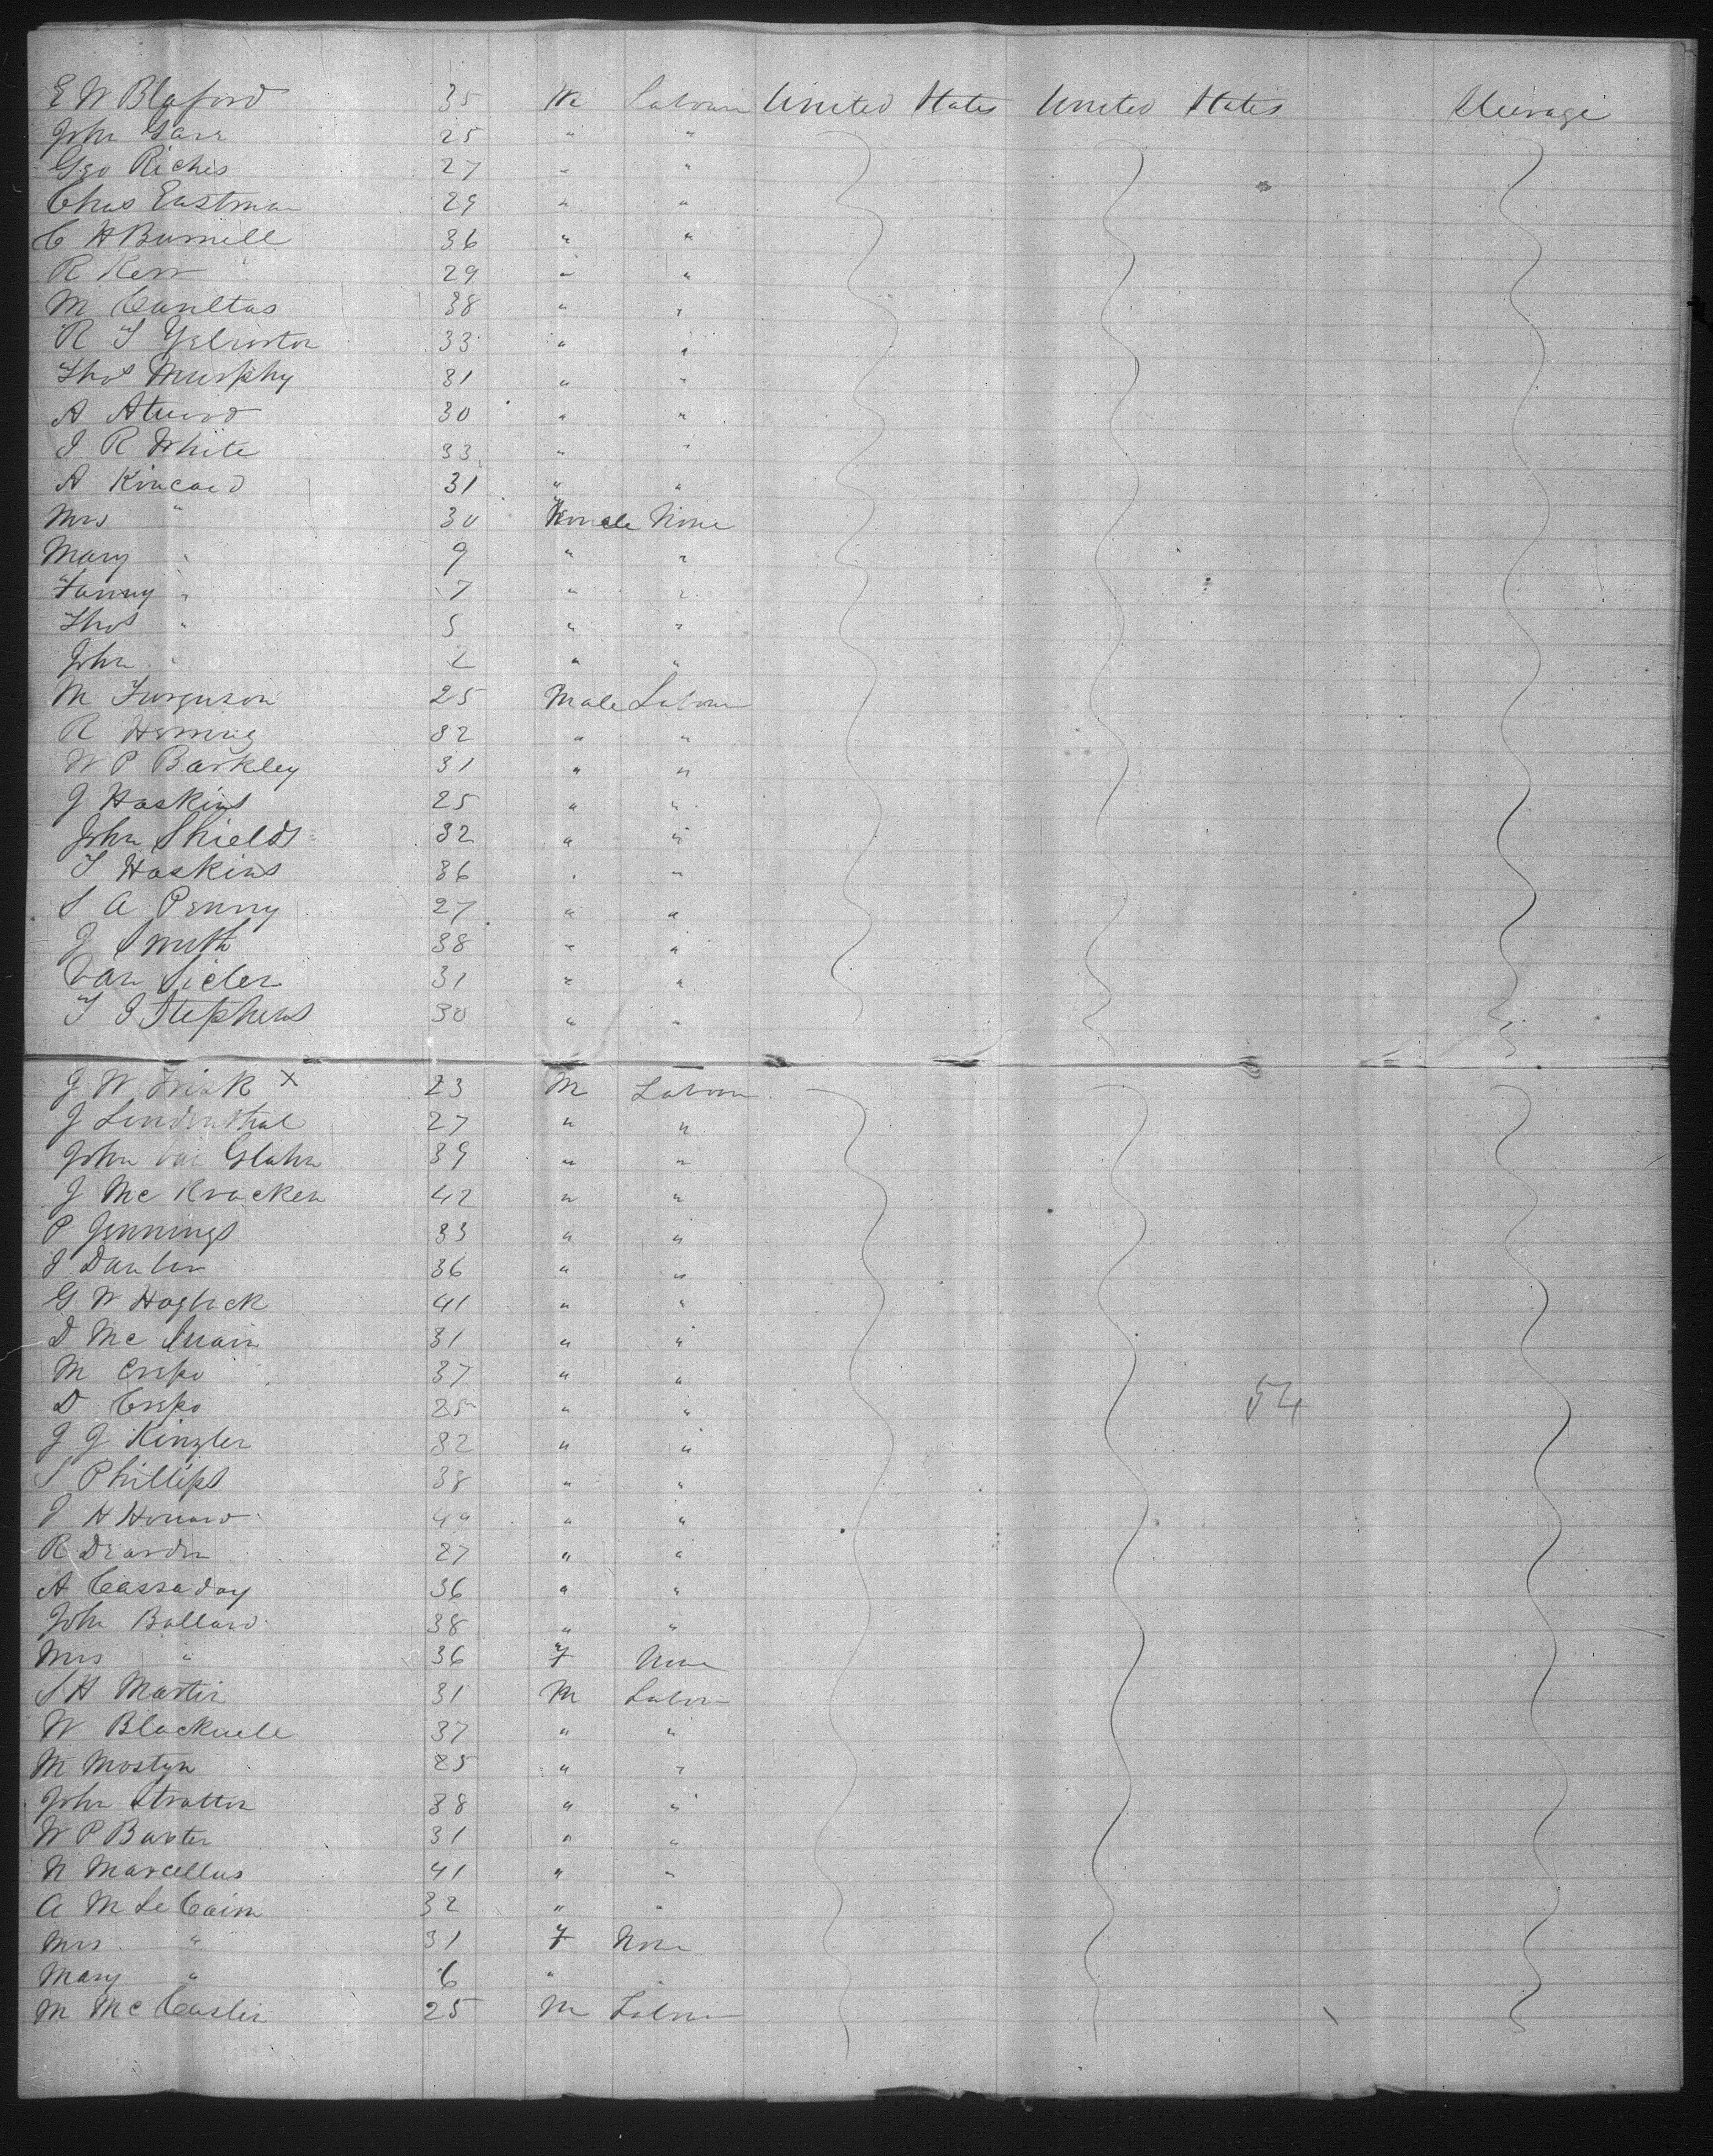 E W Blaford 35 M Labour United States United States Steerage
John Garr 25 " "
Geo Riches 27 " "
Chas Eastman 29 " "
C H Burnell 36 " "
R Kerr 29 " "
M 38 " "
R T Yelverton 33 " "
Thos Murphy 31 " "
A Atwood 30 " "
J R White 33 " "
A Kincaid 31 " "
Mrs " 30 Female None
Mary " 9 " "
Fanny " 7 " "
Thos " 5 " "
John " 2 " "
M Furguson 25 Male Labour
R Herring 32 " "
W P Barkley 31 " "
J Haskins 25 " "
John Shields 32 " "
T Haskins 36 " "
S A Penny 27 " "
J Smith 38 " "
Van Siclen 31 " "
T J Stephens 30 " "
J W Frisk x 23 M Labour
J Lindenthal 27 " "
John Van Glahn 39 " "
J Mc Kracken 42 " "
P Jennings 33 " "
J 36 " "
G W Hogback 41 " "
D Mc 31 " "
M Crepo 37 " "
D Crepo 25 " " 54
J J Kinzler 32 " "
S Phillips 38 " "
J H Howard 49 " "
R Dearden 27 " "
A Cassaday 36 " "
John Ballard 38 " "
Mrs " 36 F None
S H Martin 31 M Labour
W Blackwell 37 " "
M Mostyn 25 " "
John Stratton 38 " "
W P Baxter 31 " "
N Marcellus 41 " "
A M Le Cain 32 " "
Mrs " 31 F None
Mary " 6 " "
M Mc Caslin 25 M Labour